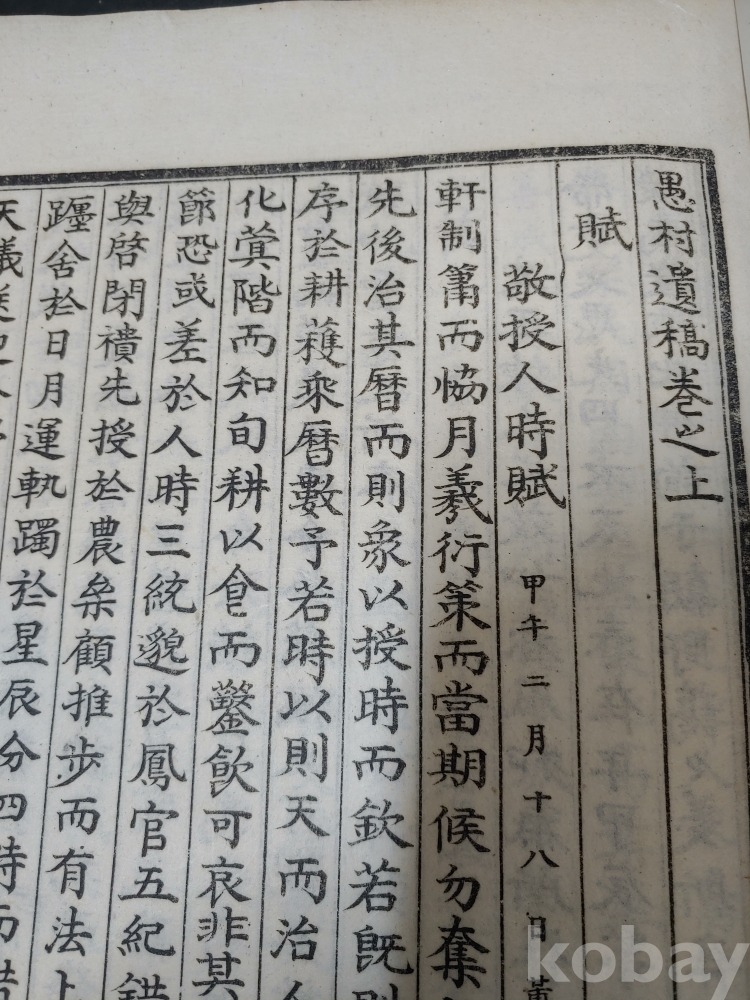 愚村遺稿卷之上
賦
敬授人時賦 甲午二月十八日黃
軒制筩而協月羲衍策而當期候勿奪
先後治其曆而則衆以授時而欽若旣則
序於耕穫乘曆數予若時以則天而治人
化蓂階而知旬耕以食而鑿飮可哀非其
節恐或差於人時三統邈於鳳官五紀錯
與啓閉禮先授於農桑顧推步而有法上
躔舍於日月運軌躅於星辰分四時而
天儀
kobay